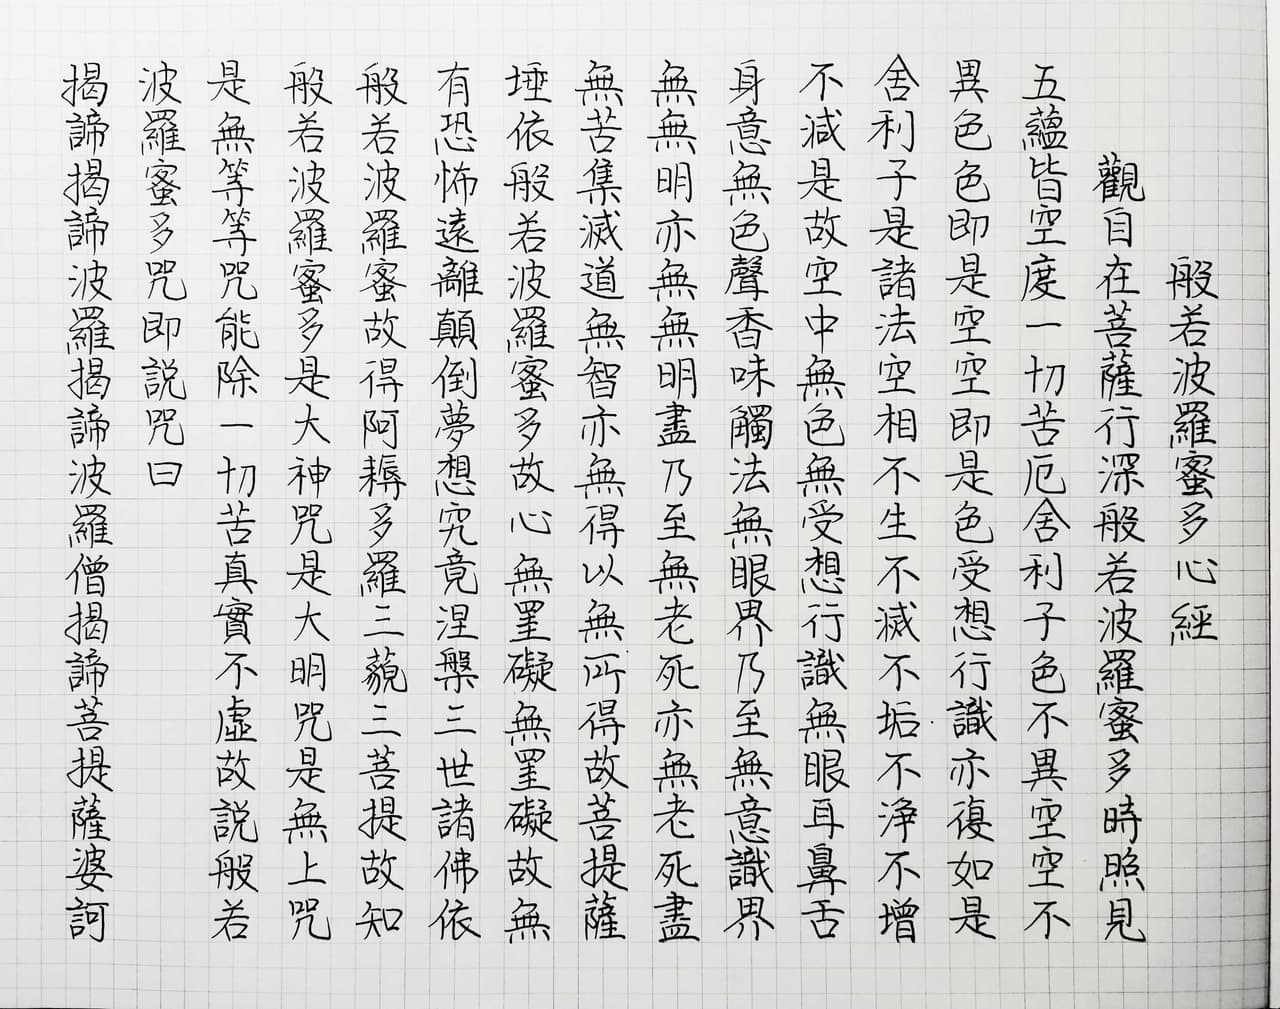 般若波羅蜜多心經
觀自在菩薩行深般若波羅蜜多時照見
五蘊皆空度一切苦厄舍利子色不異空空不
異色色即是空空即是色受想行識亦復如是
舍利子是諸法空相不生不滅不垢不淨不增
不減是故空中無色無受想行識無眼耳鼻舌
身意無色聲香味觸法無眼界乃至無意識界
無無明亦無無明盡乃至無老死亦無老死盡
無苦集滅道無智亦無得以無所得故菩提薩
埵依般若波羅蜜多故心無罣礙無罣礙故無
有恐怖遠離顛倒夢想究竟涅槃三世諸佛依
般若波羅蜜故得阿耨多羅三藐三菩提故知
般若波羅蜜多是大神咒是大明咒是無上咒
是無等等咒能除一切苦真實不虛故説般若
波羅蜜多咒即説咒曰
揭諦揭諦波羅揭諦波羅僧揭諦菩提薩婆訶